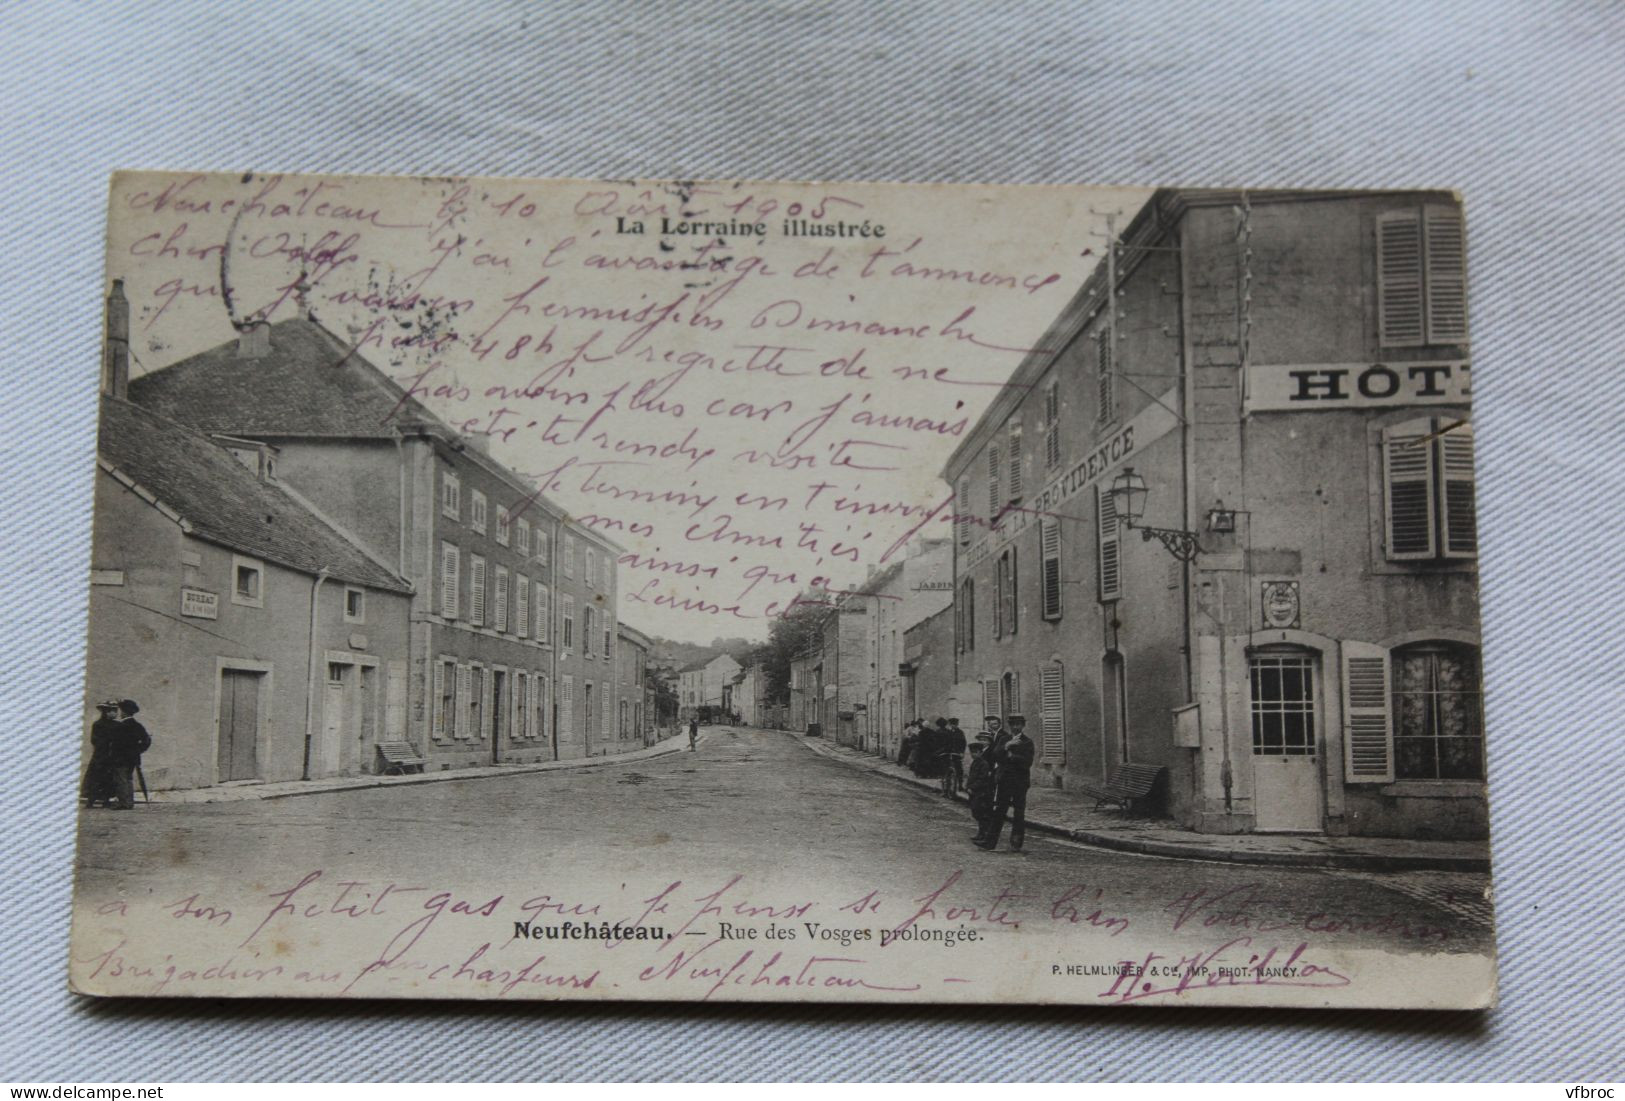 Neuchâteau le 10 Août 1905
La Lorraine illustrée
cher j'ai l'avantage de t'annonce
que je vais en permission Dimanche
pour 48h je regrette de ne
pas avoir plus car j'aurais
été te rendre visite
Je termine en t'envoyant
mes Amitiés
ainsi qu'à
Louise et
à son petit gas qui je pense se porte bien Votre cousin
Brigadier au chasseurs. Neufchateau
HÔT
HÔTEL DE LA PROVIDENCE
JARDIN
BUREAU
Neufchâteau. — Rue des Vosges prolongée.
P. HELMLINGER & Cie, IMP. PHOT. NANCY.
vfbroc